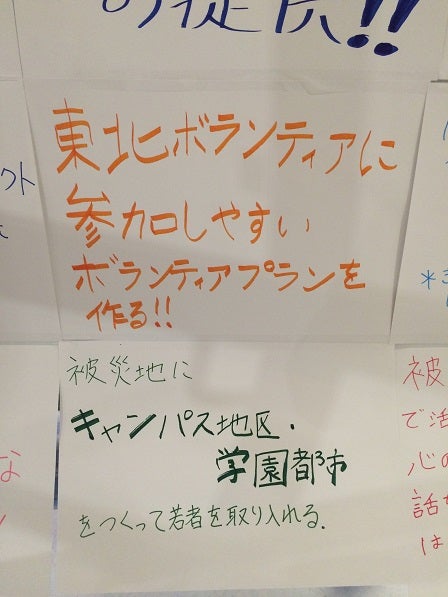 の提供!!
東北ボランティアに
参加しやすい
ボランティアプランを
作る!!
クト
被災地に
キャンパス地区・
学園都市
をつくって若者を取り入れる.
な
被
で活
心の
話
は